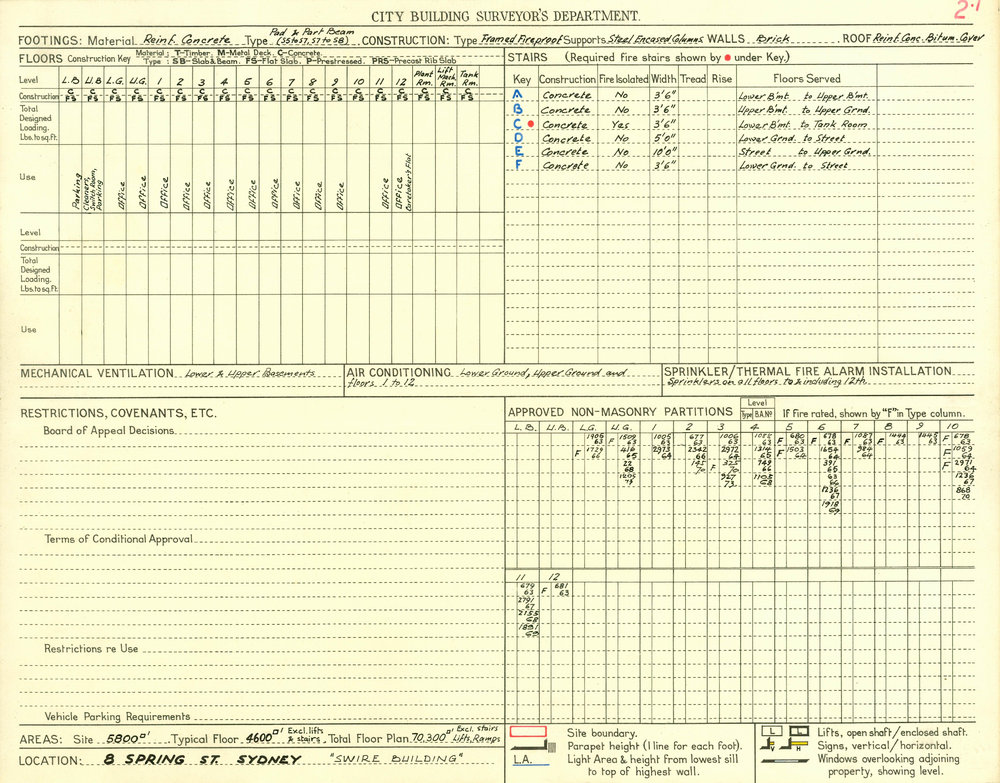 CITY BUILDING SURVEYOR'S DEPARTMENT.
2.1
FOOTINGS: Material Reinf. Concrete Type Pad & Part Beam (S5 to S7, S7 to S8) CONSTRUCTION: Type Framed Fireproof Supports Steel Encased Columns WALLS Brick ROOF Reinf. Conc. Bitum. Cover
FLOORS Construction Key Material; T-Timber. M-Metal Deck. C-Concrete.
Type : SB-Slab & Beam. FS-Flat Slab. P-Prestressed. PRS-Precast Rib Slab
Level L.B U.B L.G. U.G. 1 2 3 4 5 6 7 8 9 10 11 12 Plant Rm. Lift Mach. Rm. Tank Rm.
Construction C C C C C C C C C C C C C C C C C C C
FS FS FS FS FS FS FS FS FS FS FS FS FS FS FS FS FS FS FS
Total
Designed
Loading.
Lbs. to sq.ft.
Use Parking Cleaners, Switch Room, Parking Office Office Office Office Office Office Office Office Office Office Office Office Office Caretaker's Flat
Level
Construction
Total
Designed
Loading.
Lbs. to sq.ft.
Use
STAIRS (Required Fire stairs shown by ● under Key.)
Key Construction Fire Isolated Width Tread Rise Floors Served
A Concrete No 3'6" Lower B'mt. to Upper B'mt.
B Concrete No 3'6" Upper B'mt. to Upper Grnd.
C ● Concrete Yes 3'6" Lower B'mt. to Tank Room
D Concrete No 5'0" Lower Grnd. to Street
E Concrete No 10'0" Street to Upper Grnd.
F Concrete No 3'6" Lower Grnd. to Street
MECHANICAL VENTILATION Lower & Upper Basements
AIR CONDITIONING Lower Ground, Upper Ground and
floors 1 to 12
SPRINKLER/THERMAL FIRE ALARM INSTALLATION
Sprinklers on all floors to & including 12th
RESTRICTIONS, COVENANTS, ETC.
Board of Appeal Decisions
Terms of Conditional Approval
Restrictions re Use
Vehicle Parking Requirements
APPROVED NON-MASONRY PARTITIONS Level Type B.A. Nº If fire rated, shown by "F" in Type column.
L.B. U.B. L.G. U.G. 1 2 3 4 5 6 7 8 9 10
1905 63 F 1509 63 1005 63 677 63 1006 63 1085 63 F 680 63 F 678 63 F 1087 63 F 1444 63 1445 63 F 678 63
F 1729 66 416 65 2973 64 2342 66 2972 64 1314 65 F 1503 64 1654 64 984 64 F 1059 64
22 68 145 70 F 325 70 749 66 391 65 F 2971 64
1205 79 967 73 1105 68 63 66 1236 67
1236 67 868 70
1918 69
11 12
679 63 F 681 63
2791 67
2155 68
1891 69
AREAS: Site 5800□' Typical Floor 4600□' Excl. lifts & stairs Total Floor Plan 70,300□' Excl. stairs Lifts, Ramps
LOCATION: 8 SPRING ST. SYDNEY "SWIRE BUILDING"
Site boundary.
Parapet height (1 line for each foot).
L.A. Light Area & height from lowest sill
to top of highest wall.
L Lifts, open shaft/enclosed shaft.
V H Signs, vertical/horizontal.
Windows overlooking adjoining
property, showing level.